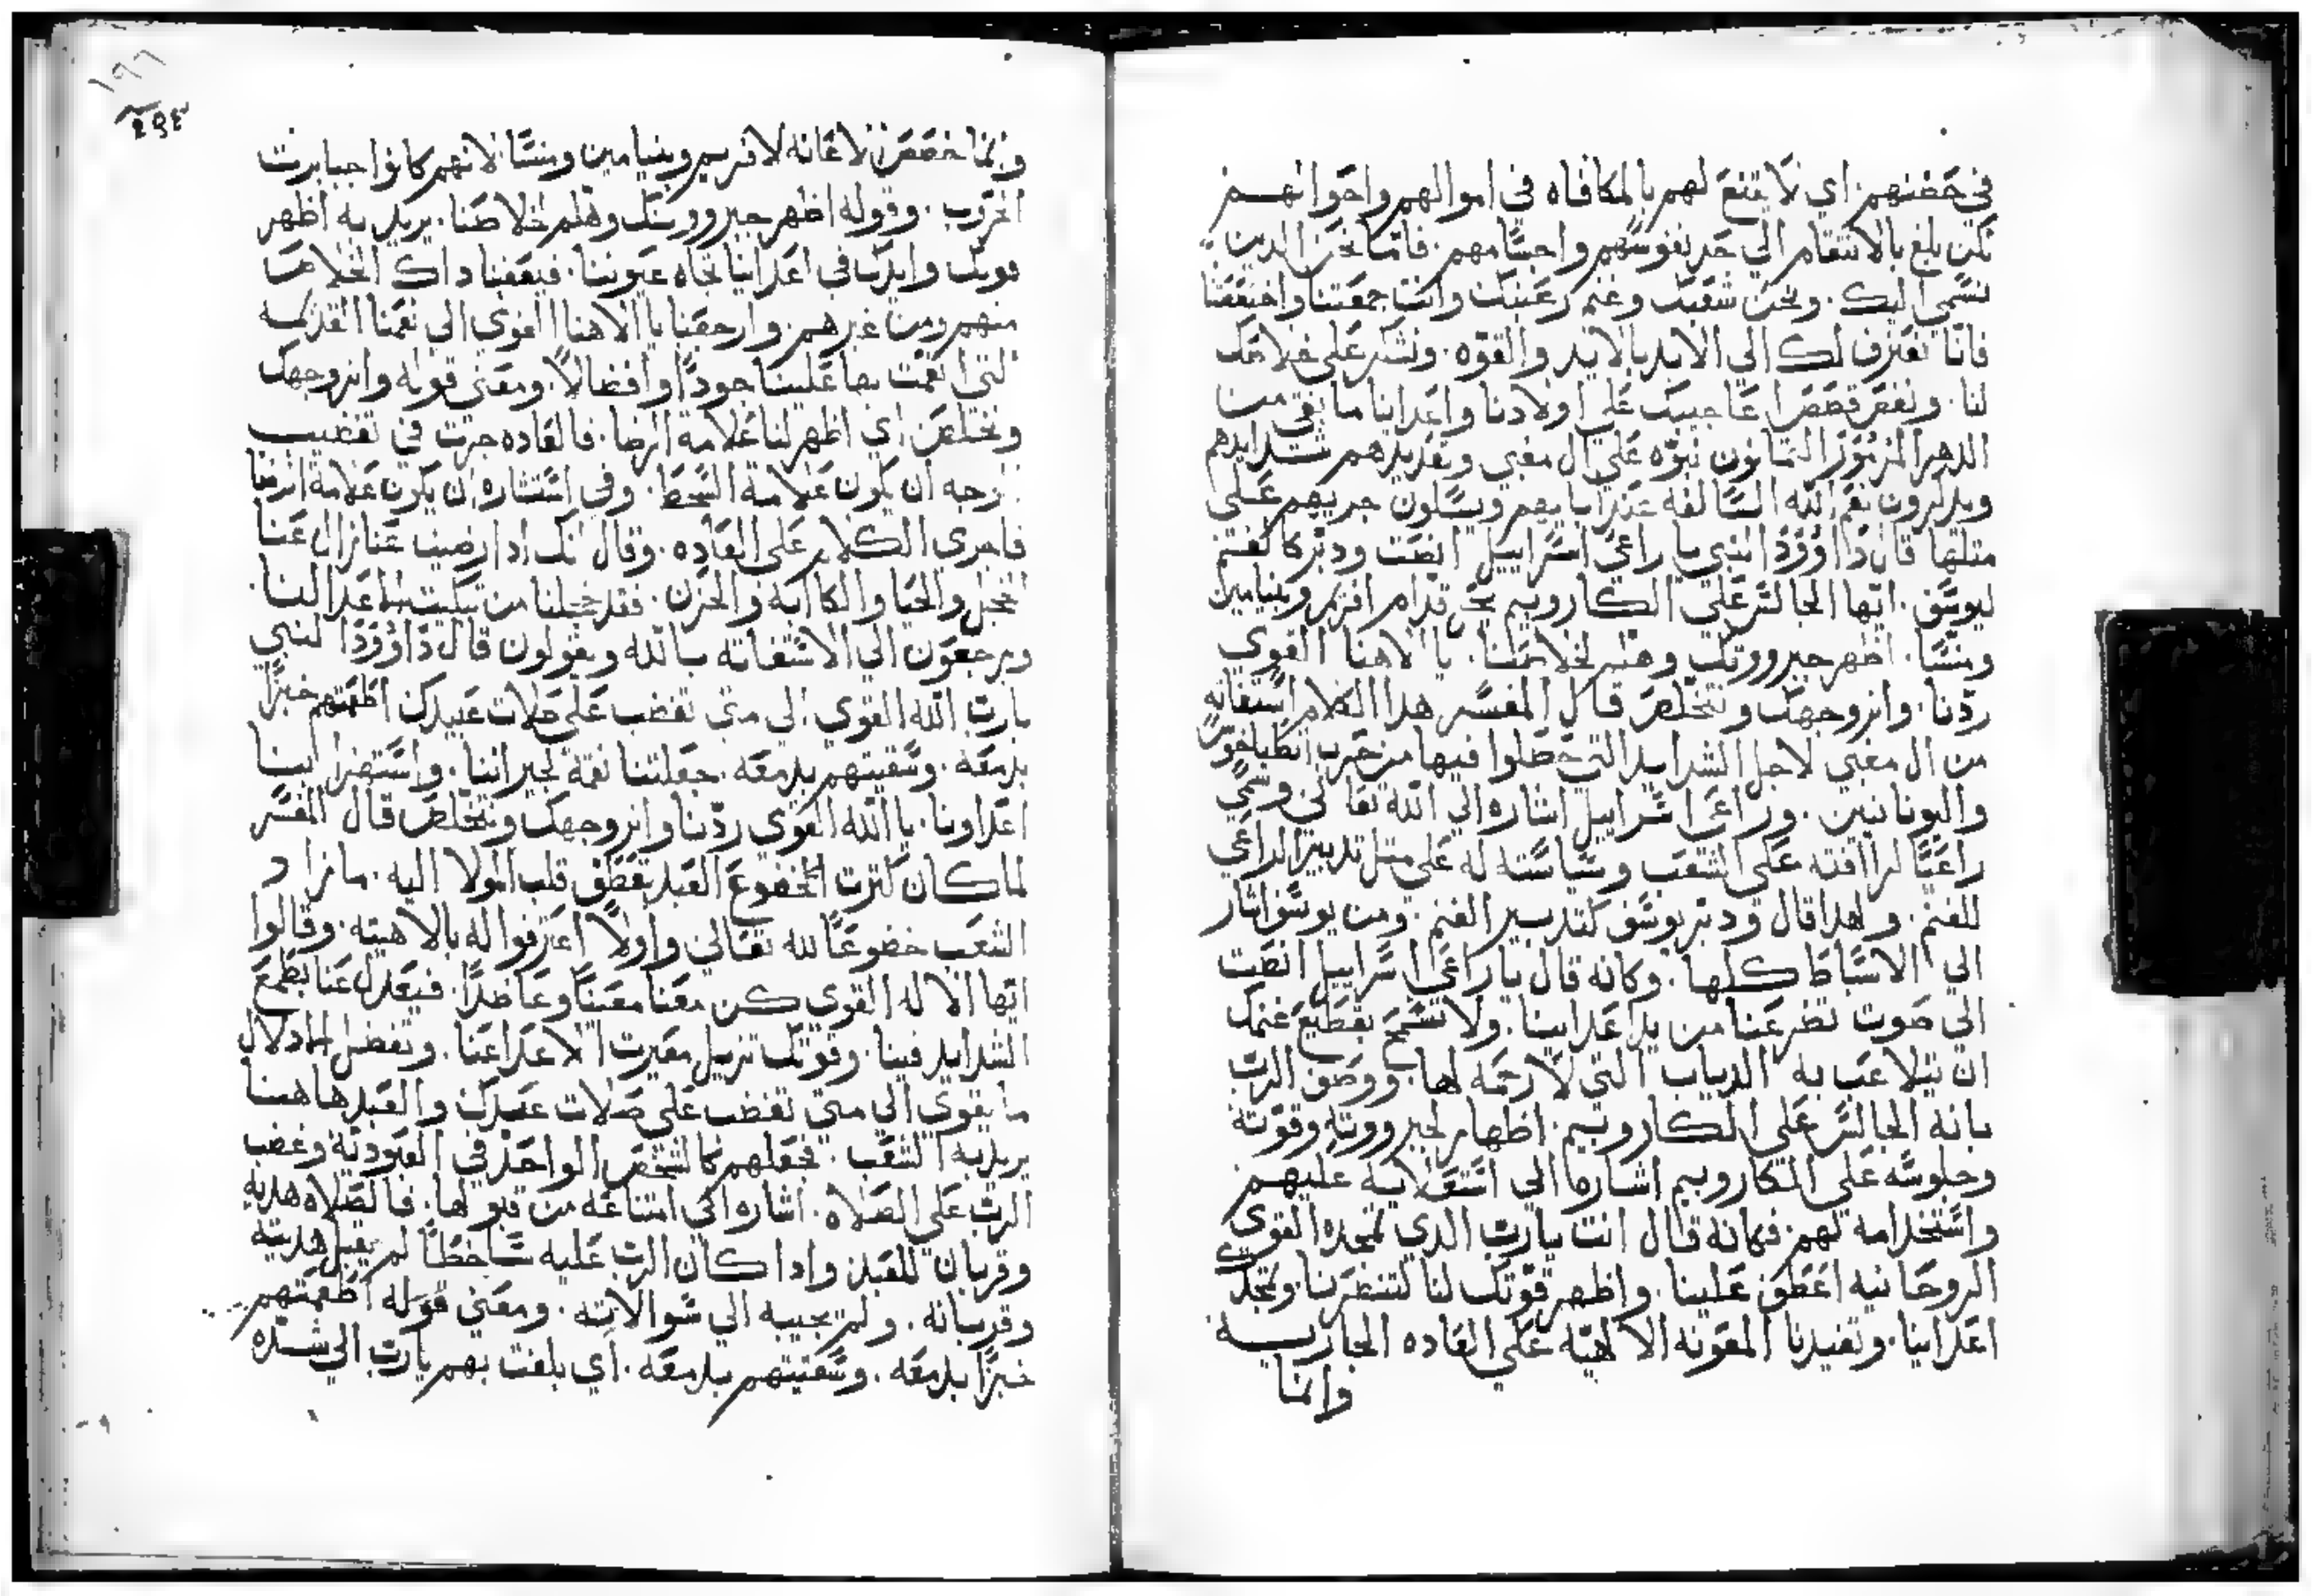 في حضنهم اي لا تقنع لهم بالمكافاه في اموالهم واحوالهم
لكن بلغ بالانتقام الي حد نفوسهم واجسامهم فاما نحن الدين
نسمي اليك ونحن شعبك وغنم رعيتك واذا جمعتنا
فانا نعترف لك الي الابد بالايد والقوه ونشكر علي خلاصك
لنا ونقص قصص اعاجيبك علي اولادنا واعداينا ما بقي من
الدهر المزمور التمانون نبوه علي ال مقبي وتعديدهم شدايدهم
ويدكرون نعم الله السالفه عند ابايهم ويسلون جريهم علي
متلها قال داوود النبي يا راعي اسراييل انصت ودبر كالغنم
ليوسف ايها الجالس علي الكاروبيم تجلي قدام افريم وبنيامين
ومنسا اظهر جبرووتك وهلم لخلاصنا يا الاهنا القوي
ردنا وانر وجهك ونتخلص قال المفسر هدا الكلام استغاته
من ال مقبي لاجل الشدايد التي حصلوا فيها من حرب انطياخوس
واليونانيين وراعي اسراييل اشاره الي الله تعالي وسمي
راعيا لراافته علي الشعب وسياسته له علي متل تدبير الراعي
للغنم ولهدا قال ودبر يوسف كتدبير الغنم ومن يوسف اشار
الي الاسباط كلها وكانه قال يا راعي اسراييل انصت
الي صوت تضرعنا من يد اعداينا ولا تسمح بقطيع غنمك
ان تتلاعب به الدياب التي لا رحمه لها ووصف الرب
بانه الجالس علي الكاروبيم اظهار لجبرووته وقوته
وجلوسه علي الكاروبيم اشاره الي استعلايه عليهم
واستخدامه لهم فكانه قال انت يارب الدي تمجده القوي
الروحانيه اعطف علينا واظهر قوتك لنا لتنصرنا وتخدل
اعداينا وتفيدنا المعونه الالهيه علي العاده الجاريه
وانما
١٩٦
وانما خصص الاغاته لافريم وبنيامين ومنسا لانهم كانوا جبابرت
الحروب وقوله اظهر جبرووتك وهلم لخلاصنا يريد به اظهر
قوتك وايدك في اعداينا تجاه عيوننا فيقفنا داك الخلاص
منهم ومن غيرهم وارجعنا يا الاهنا القوي الي نعمنا القديمه
التي انعمت بها علينا جودا وافضالا ومعني قوله وانر وجهك
ونتخلص اي اظهر لنا علامة الرضا فالعاده جرت في تقطيب
الوجه ان يكون علامة السخط وفي استناره ان يكون علامة الرضا
فاجري الكلام علي العاده وقال انك ادا رضيت عنا زال عنا
الخجل والحيا والكاابه والحزن فقد خجلنا من تبكيت الاعدا لنا
ويرجعون الي الاستغاته بالله ويقولون قال داوود النبي
يارب الله القوي الي متي تغضب علي صلات عبيدك اطعمتهم خبزا
بدمعه وسقيتهم بدمعه جعلتنا نقمة لجيراننا واستهزا بنا
اعداونا يا الله القوي ردنا وانر وجهك ونتخلص قال المفسر
لما كان كترت الخضوع العبد يعطف قلب المولا اليه ما زاد
الشعب خضوعا لله تعالي واولا اعترفوا له بالاهيته وقالوا
ايها الاله القوي كن معنا معينا وعاضدا فيعدل عنا بطمع
الشدايد فينا وقوتك تزيل معيرت الاعدا عنا وتفضل
ما يقوي الي متي تغضب علي صلات عبدك والعبد هاهنا
يريد به الشعب فجعلهم كالشخص الواحد في العبوديه وغضب
الرب علي الصلاه اشاره الي امتناعه من قبولها فالصلاه هديه
وقربان للعبد وادا كان الرب عليه ساخطا لم يقبل هديته
وقربانه ولم يجيبه الي سوالاته ومعني قوله اطعمتهم
خبزا بدمعه وسقيتهم بدمعه اي بلغت بهم يارب الي شده